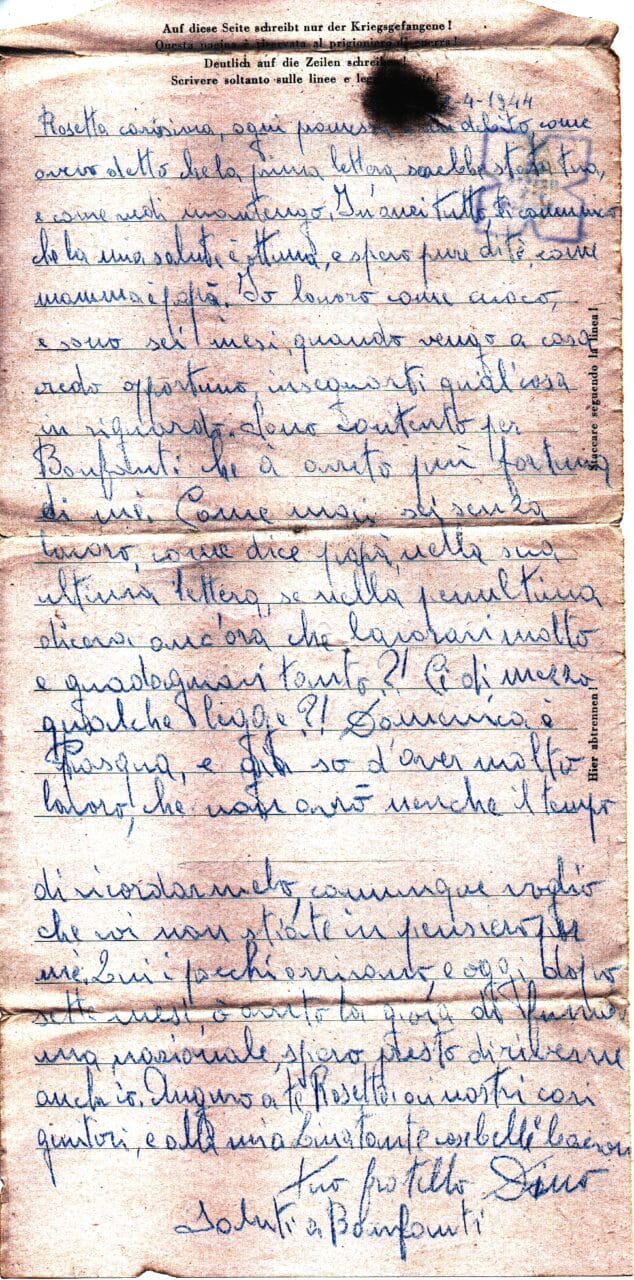 Auf diese Seite schreibt nur der Kriegsgefangene!
Questa pagina è riservata al prigioniero di guerra!
Deutlich auf die Zeilen schreiben!
Scrivere soltanto sulle linee e
-4-1944
Rosetta carissima, ogni promessa debito, come
avevo detto che la prima lettera sarebbe stata tua,
e come vedi mantengo. In'anzi tutto, ti comunico
che la mia salute è ottima, e spero pure di tè, come
mamma è papà. Io lavoro come cuoco,
e sono sei mesi, quando vengo a casa
credo opportuno, insegnarti qual'cosa
in riguardo. Sono contento per
Bonfanti che à avuto più fortuna
di mè. Come mai sei senza
lavoro, come dice papà, nella sua
ultima lettera, se nella penultima
diceva anc'ora che lavoravi molto
e guadagnavi tanto?! C'è di mezzo
qualche legge?! Domenica è
Pasqua, e già so d'aver molto
lavoro, che non avrò nenche il tempo
di ricordarmelo, comunque voglio
che voi non stiate in pensiero per
mè. Qui i pacchi arrivano, e oggi dopo
sette mesi, ò avuto la gioia di
una nazionale, spero presto di riceverne
anch'io. Auguro a tè Rosetta ai nostri cari
genitori, e alla mia tante cose belle
tuo fratello Dino
Saluti a Bonfanti
Staccare seguendo la linea!
Hier abtrennen!